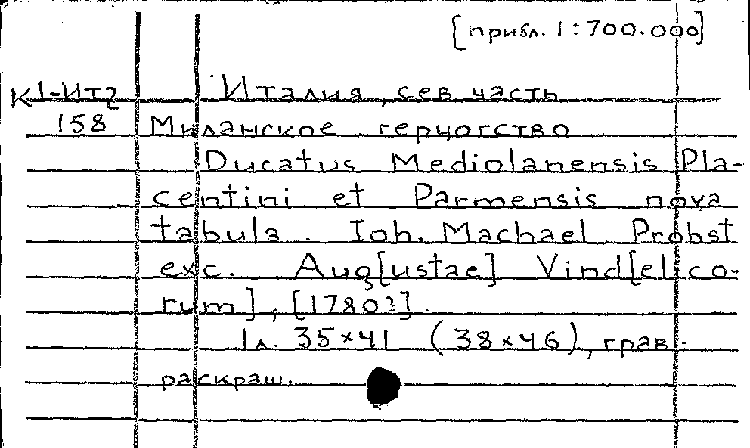 [прибл. 1:700.000]
К 1-Ит2 Италия, сев. часть
158 Миланское герцогство
Ducatus Mediolanensis Pla-
centini et Parmensis nova
tabula. Ioh. Machael Probst
exc. Aug[ustae] Vind[elico-
rum], [1780?].
1 л. 35×41 (38×46), грав.
раскраш.